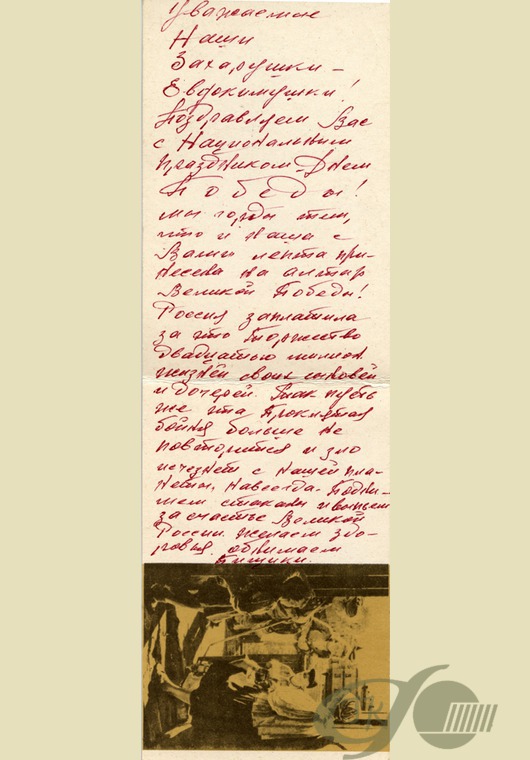 Уважаемые
Наши
Захарушки –
Евдокимушки!
Поздравляем Вас
с Национальным
праздником – Днем
Победы!
Мы горды тем,
что и наша с
Вами лепта при-
несена на алтар
Великой Победы!
Россия заплатила
за это торжество
двадцатью милион
жизней своих сыновей
и дочерей. Так пусть
же эта проклятая
бойня больше не
повторится и зло
исчезнет с нашей пла-
неты, навсегда. Подни-
мем стаканы и выпьем
за счастье Великой
России. Желаем здо-
ровья, обнимаем